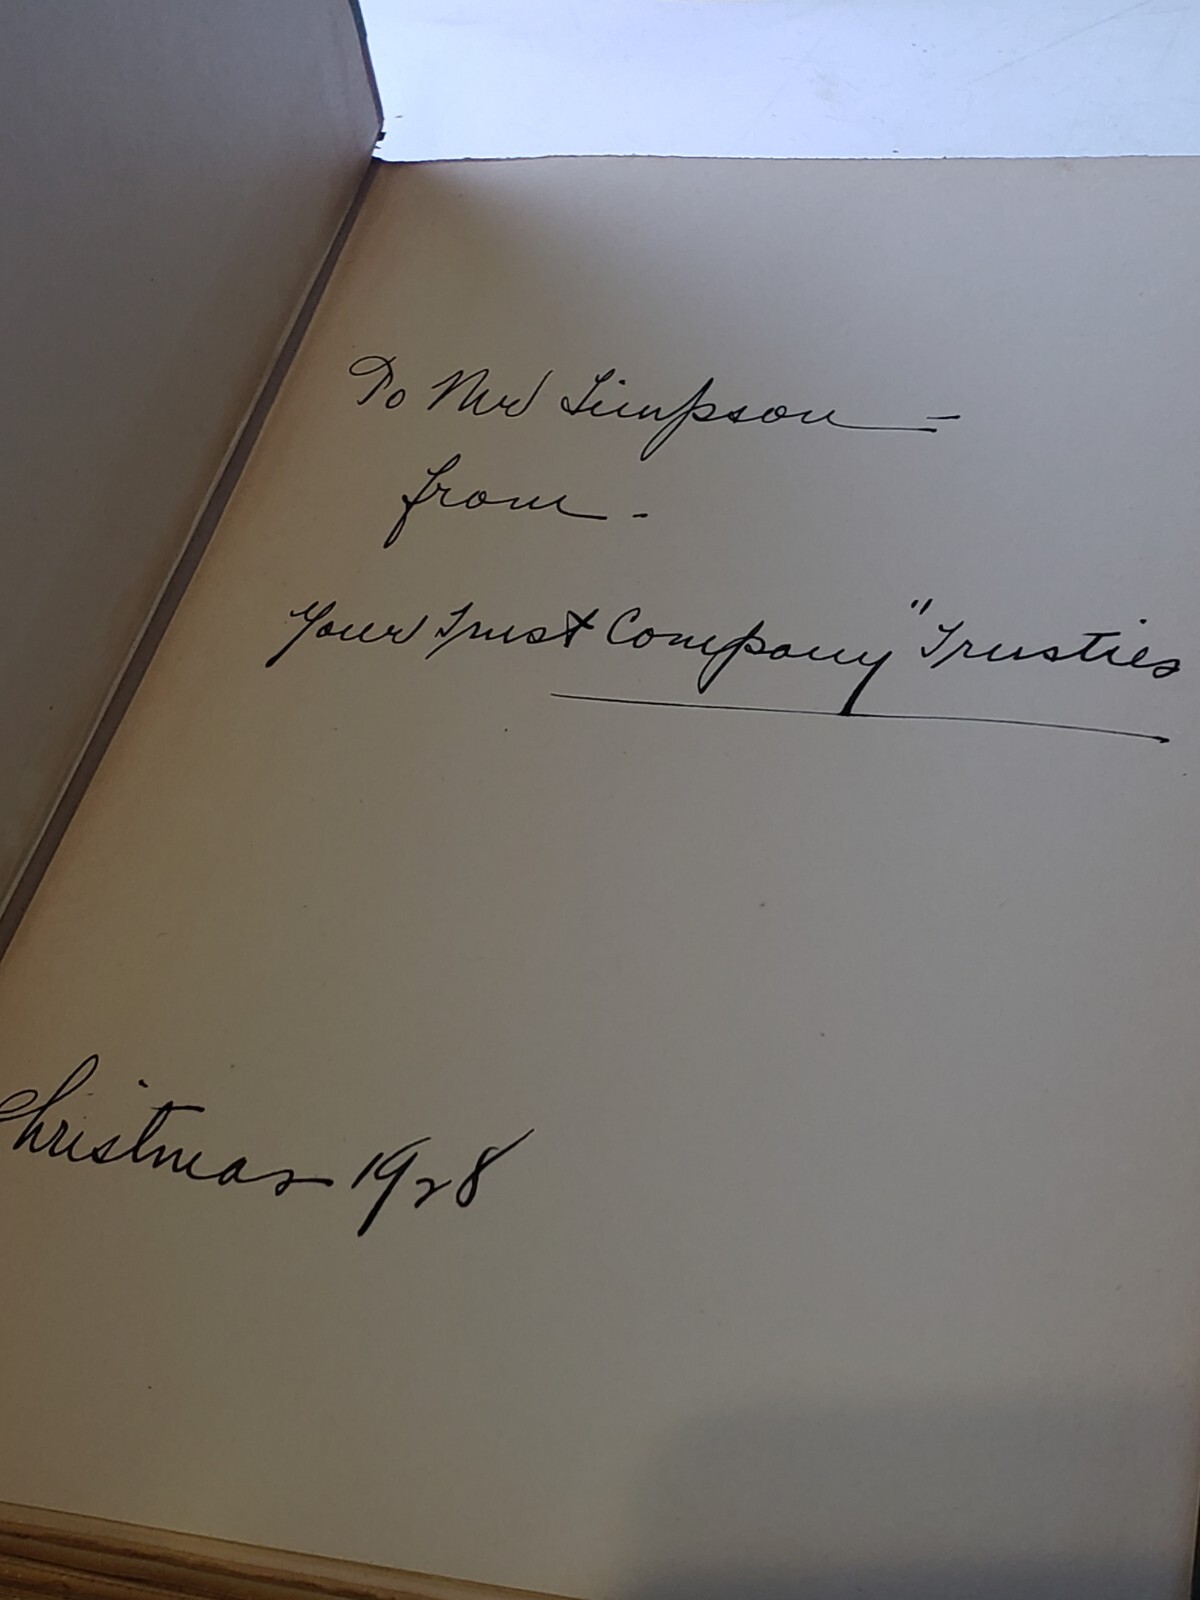 To Mr Simpson =
from -
Your Trust Company "Trusties
Christmas 1928